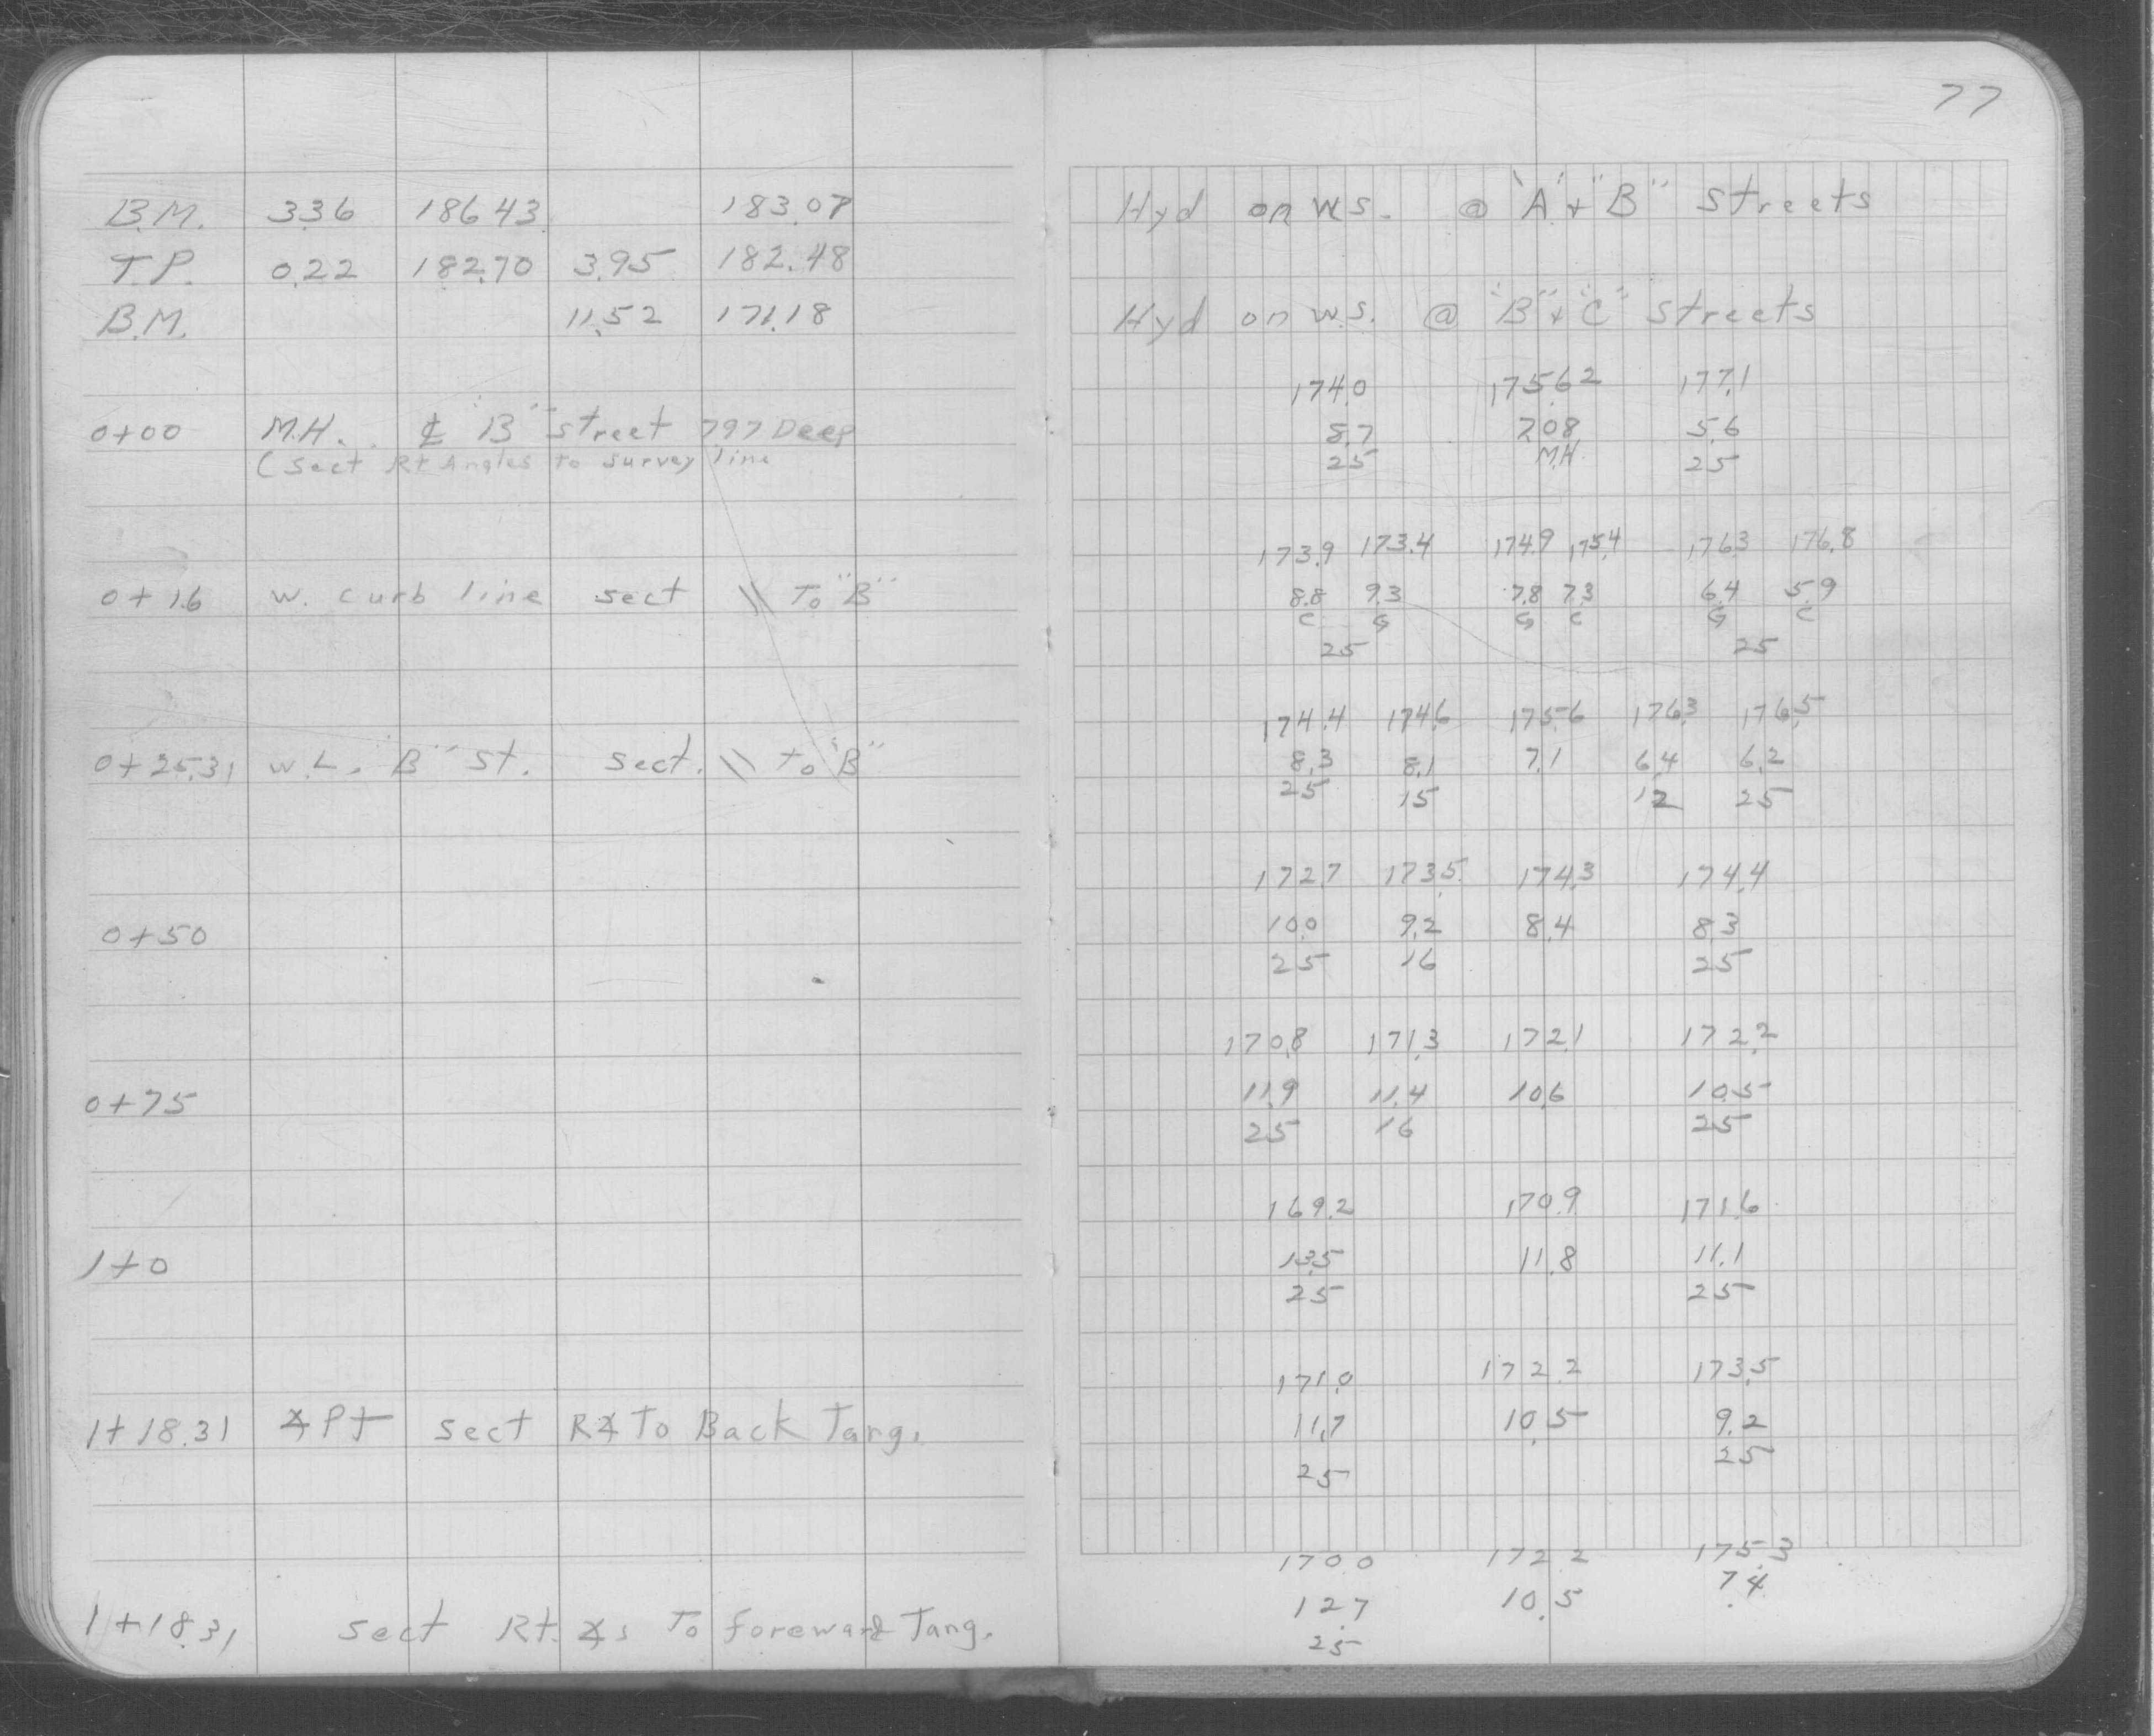 77
B.M. 3.36 186.43 183.07 Hyd on W.S. @ "A" + "B" Streets
T.P. 0.22 182.70 3.95 182.48
B.M. 11.52 171.18 Hyd on W.S. @ "B" + "C" Streets
174.0 175.62 177.1
0+00 M.H. ℄ "B" Street 7.97 Deep 8.7 7.08 5.6
(Sect Rt Angles to Survey line 25 M.H. 25
173.9 173.4 174.9 175.4 176.3 176.8
0+16 W. Curb line sect \\ To "B" 8.8 9.3 7.8 7.3 6.4 5.9
C G G C G C
25 25
174.4 174.6 175.6 176.3 176.5
0+25.31 W.L. "B" St. Sect. \\ to "B" 8.3 8.1 7.1 6.4 6.2
25 15 12 25
172.7 173.5 174.3 174.4
0+50 10.0 9.2 8.4 8.3
25 16 25
170.8 171.3 172.1 172.2
0+75 11.9 11.4 10.6 10.5
25 16 25
169.2 170.9 171.6
1+0 13.5 11.8 11.1
25 25
171.0 172.2 173.5
1+18.31 ∡Pt sect R∡ To Back Tang. 11.7 10.5 9.2
25 25
170.0 172.2 175.3
1+18.31 sect Rt. ∡s To foreward Tang. 12.7 10.5 7.4
25